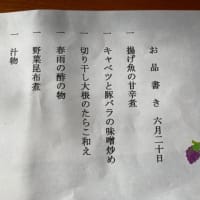 お品書き 六月二十日
一 揚げ魚の甘辛煮
一 キャベツと豚バラの味噌炒め
一 切り干し大根のたらこ和え
一 春雨の酢の物
一 野菜昆布煮
一 汁物